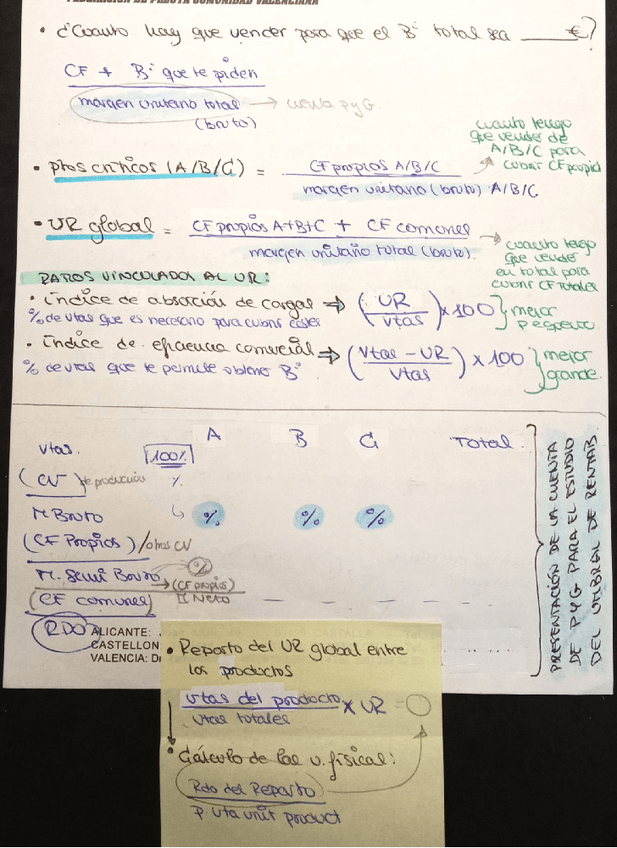 FEDERACIÓN DE PILOTA COMUNIDAD VALENCIANA
• ¿Cuanto hay que vender para que el Bº total sea ______€?
CF + Bº que te piden
margen unitario total → cuenta PyG
(bruto)
cuanto tengo
que vender de
A/B/C para
cubrir CF propios
• Ptos críticos (A/B/C) = CF propios A/B/C
margen unitario (bruto) A/B/C
• UR global = CF propios A+B+C + CF comunes
margen unitario total (bruto).
cuanto tengo
que vender
en total para
cubrir CF Totales
RATIOS VINCULADOS AL UR:
• Índice de absorción de cargas ⇒ (UR / vtas) × 100 } mejor
% de vtas que es necesario para cubrir costes
pequeño.
• Índice de eficiencia comercial ⇒ (Vtas - UR / Vtas) × 100 } mejor
% de vtas que te permite obtener Bº
grande.
A B C TOTAL.
Vtas. 100%
(CV) de producción %
M Bruto ↳ % % %
(CF Propios) / otros CV
M. Semi Bruto → %
(CF propios)
(CF comunes) M Neto
RDO
ALICANTE:
CASTELLON
VALENCIA:
PRESENTACIÓN DE LA CUENTA
DE PYG PARA EL ESTUDIO
DEL UMBRAL DE RENTAB.
• Reparto del UR global entre
los productos
vtas del producto × UR =
vtas totales
• Cálculo de las u. físicas:
Rdo del Reparto
P. vta unit product